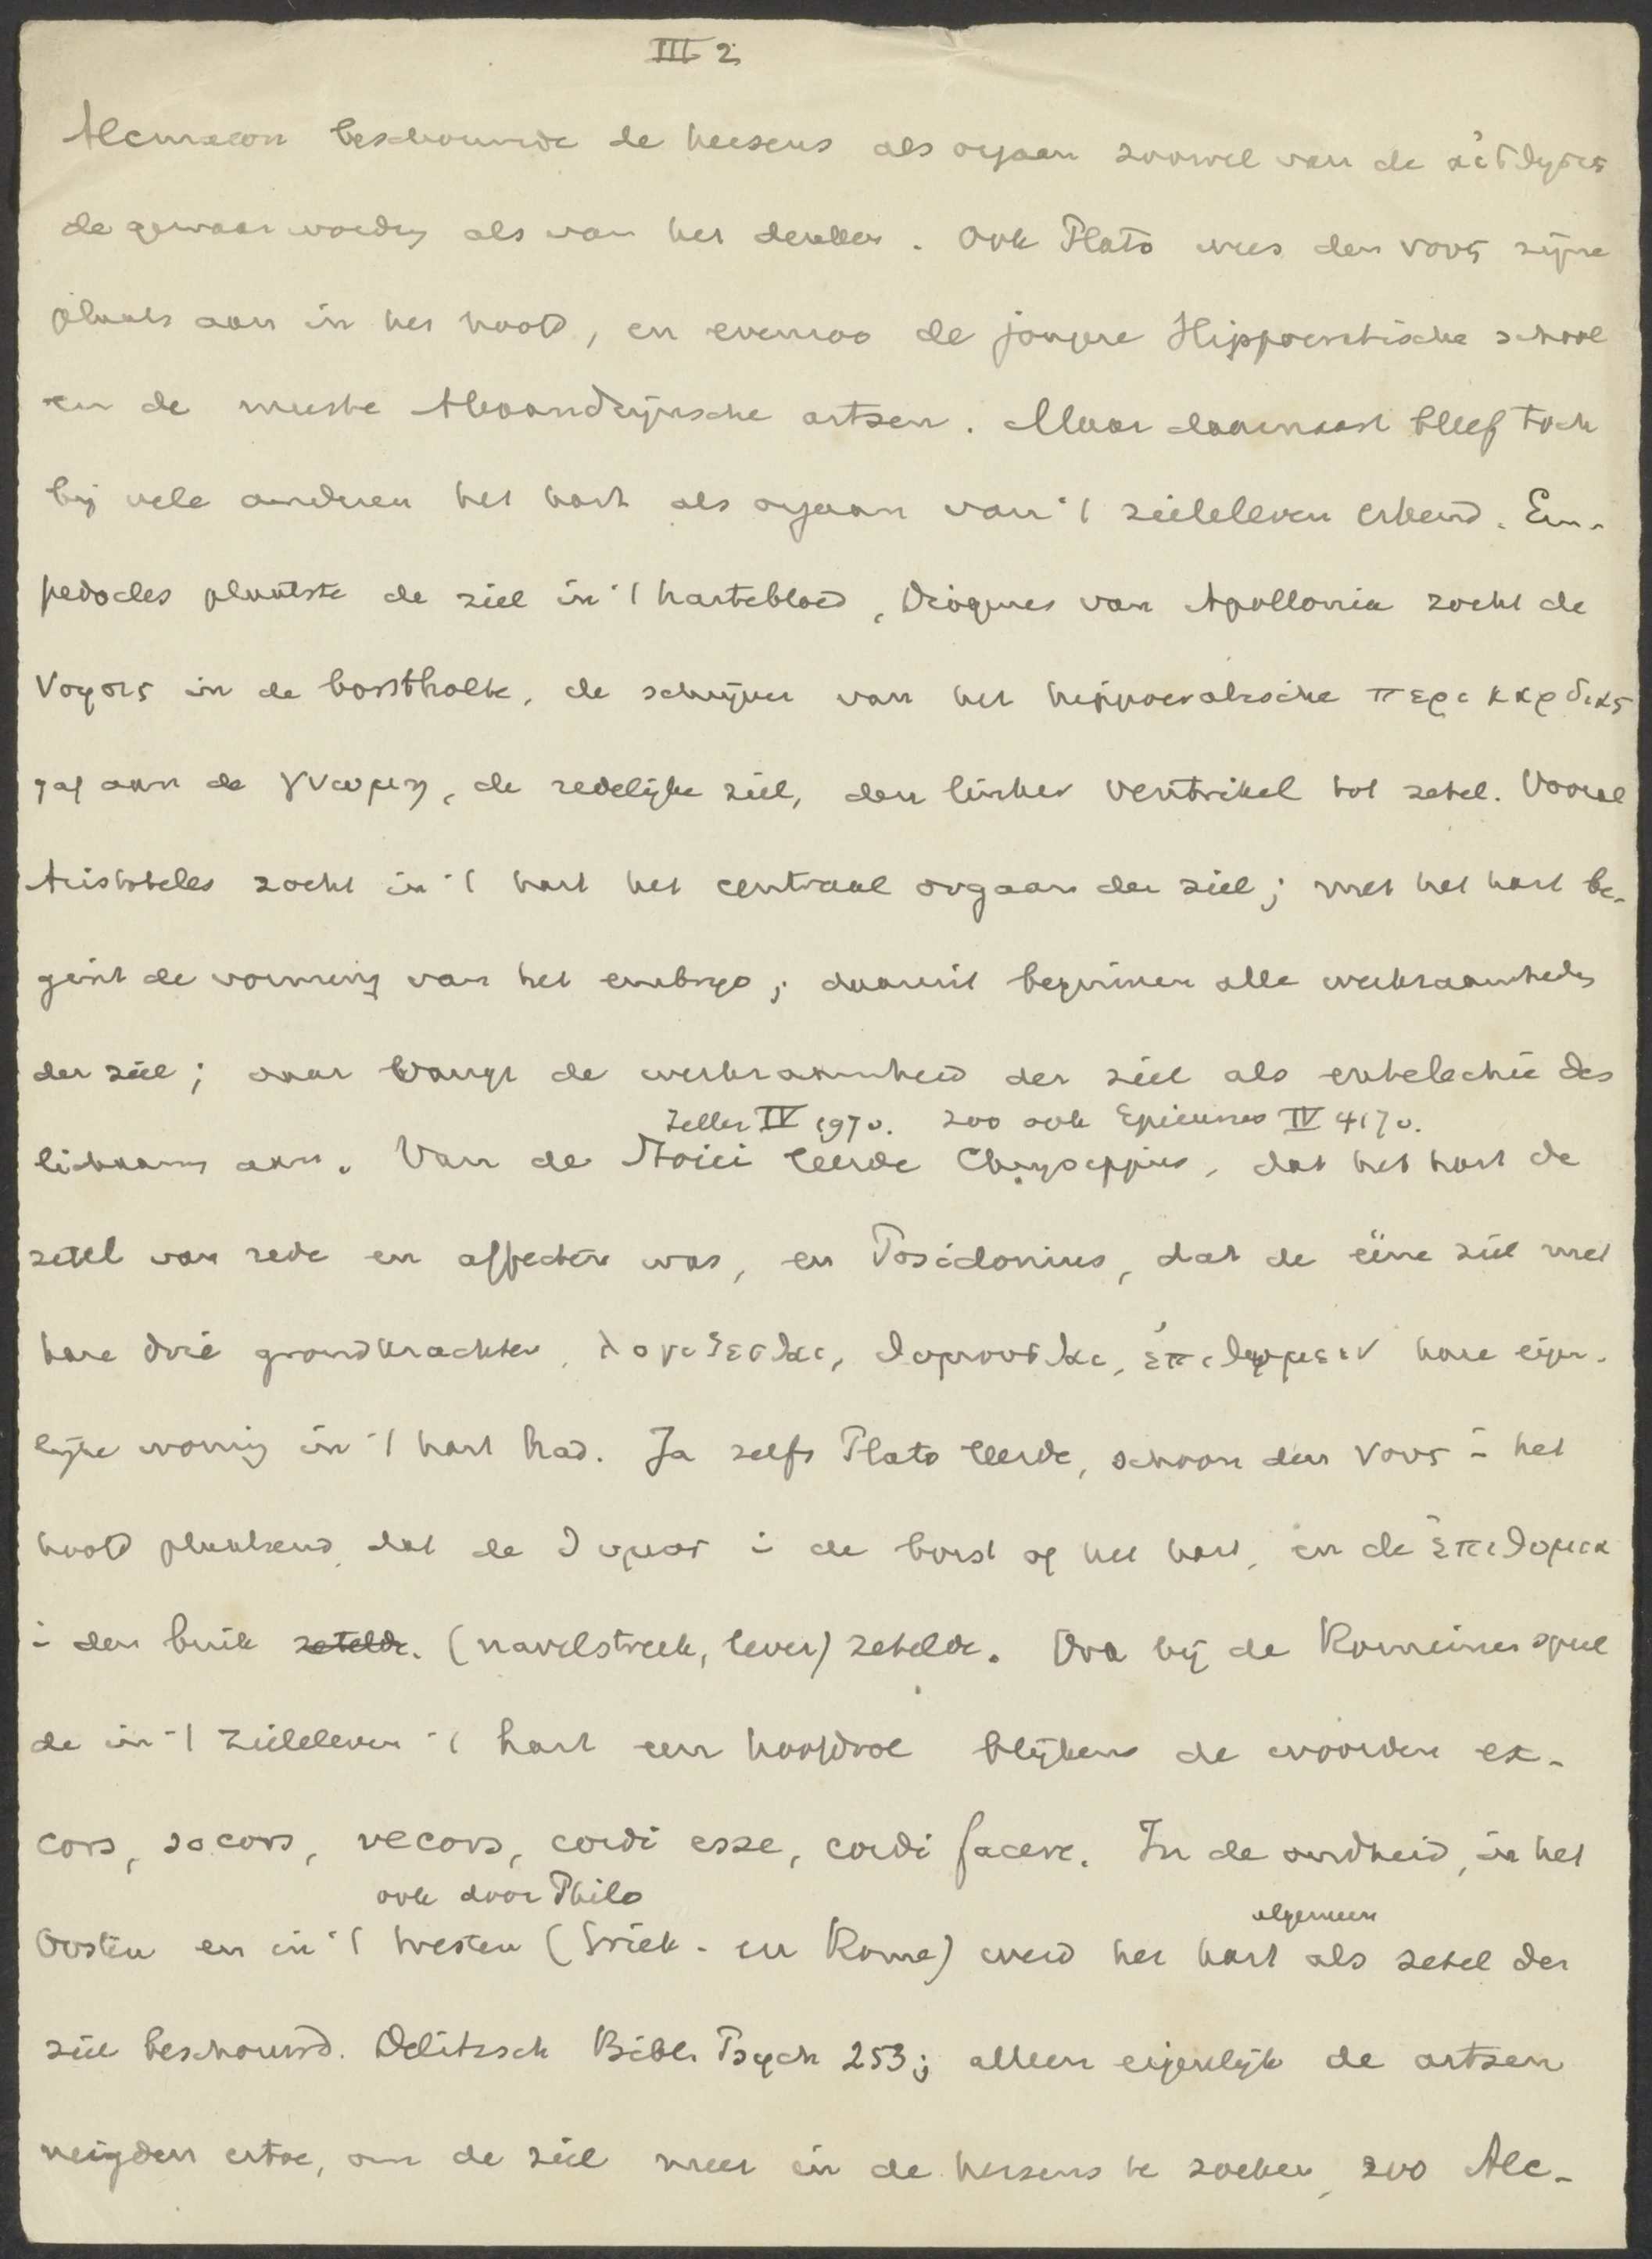 III 2
Alcmaeon beschouwde de hersens als orgaan zoowel van de αἰσθησις
de gewaarwording als van het denken. Ook Plato wees den νους zijne
plaats aan in het hoofd, en evenzoo de jongere Hippocratische school
en de meeste Alexandrijnsche artsen. Maar daarnaast bleef toch
bij vele anderen het hart als orgaan van 't zieleleven erkend. Em-
pedocles plaatste de ziel in 't hartebloed, Diogenes van Apollonia zocht de
νοησις in de borstholte, de schrijver van het hippocratische περι καρδιας
gaf aan de γνωμη, de redelijke ziel, den linker ventrikel tot zetel. Vooral
Aristoteles zocht in 't hart het centraal orgaan der ziel; met het hart be-
gint de vorming van het embryo; daaruit beginnen alle werkzaamheden
der ziel; daar vangt de werkzaamheid der ziel als entelechie des
Zeller IV 197v. zoo ook Epicurus IV 417v.
lichaams aan. Van de Stoici leerde Chrysippus, dat het hart de
zetel van rede en affecten was, en Posidonius, dat de eene ziel met
hare drie grondkrachten, λογιζεσθαι, θυμουσθαι, ἐπιθυμειν hare eigen-
lijke woning in 't hart had. Ja zelfs Plato leerde, schoon den νους in het
hoofd plaatsend, dat de θυμος in de borst of het hart, en de ἐπιθυμια
in den buik zetelde. (navelstreek, lever) zetelde. Ook bij de Romeinen speel
de in 't zieleleven 't hart een hoofdrol blijkens de woorden ex-
cors, socors, vecors, cordi esse, cordi facere. In de oudheid, in het
ook door Philo algemeen
Oosten en in 't Westen (Griek. en Rome) werd het hart als zetel der
ziel beschouwd. Delitzsch Bibl. Psych 253; alleen eigenlijk de artsen
neigden ertoe, om de ziel meer in de hersens te zoeken, zoo Alc-